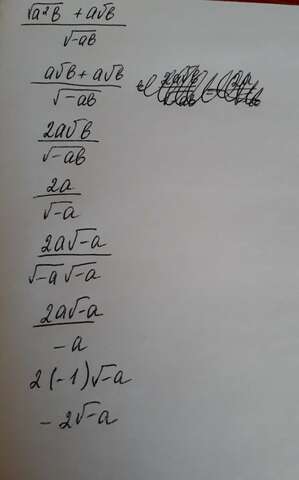 (√(a²b) + a√b)/√(-ab)
(a√b + a√b)/√(-ab)
2a√b/√(-ab)
2a/√(-a)
2a√(-a)/(√(-a)√(-a))
2a√(-a)/(-a)
2(-1)√(-a)
-2√(-a)